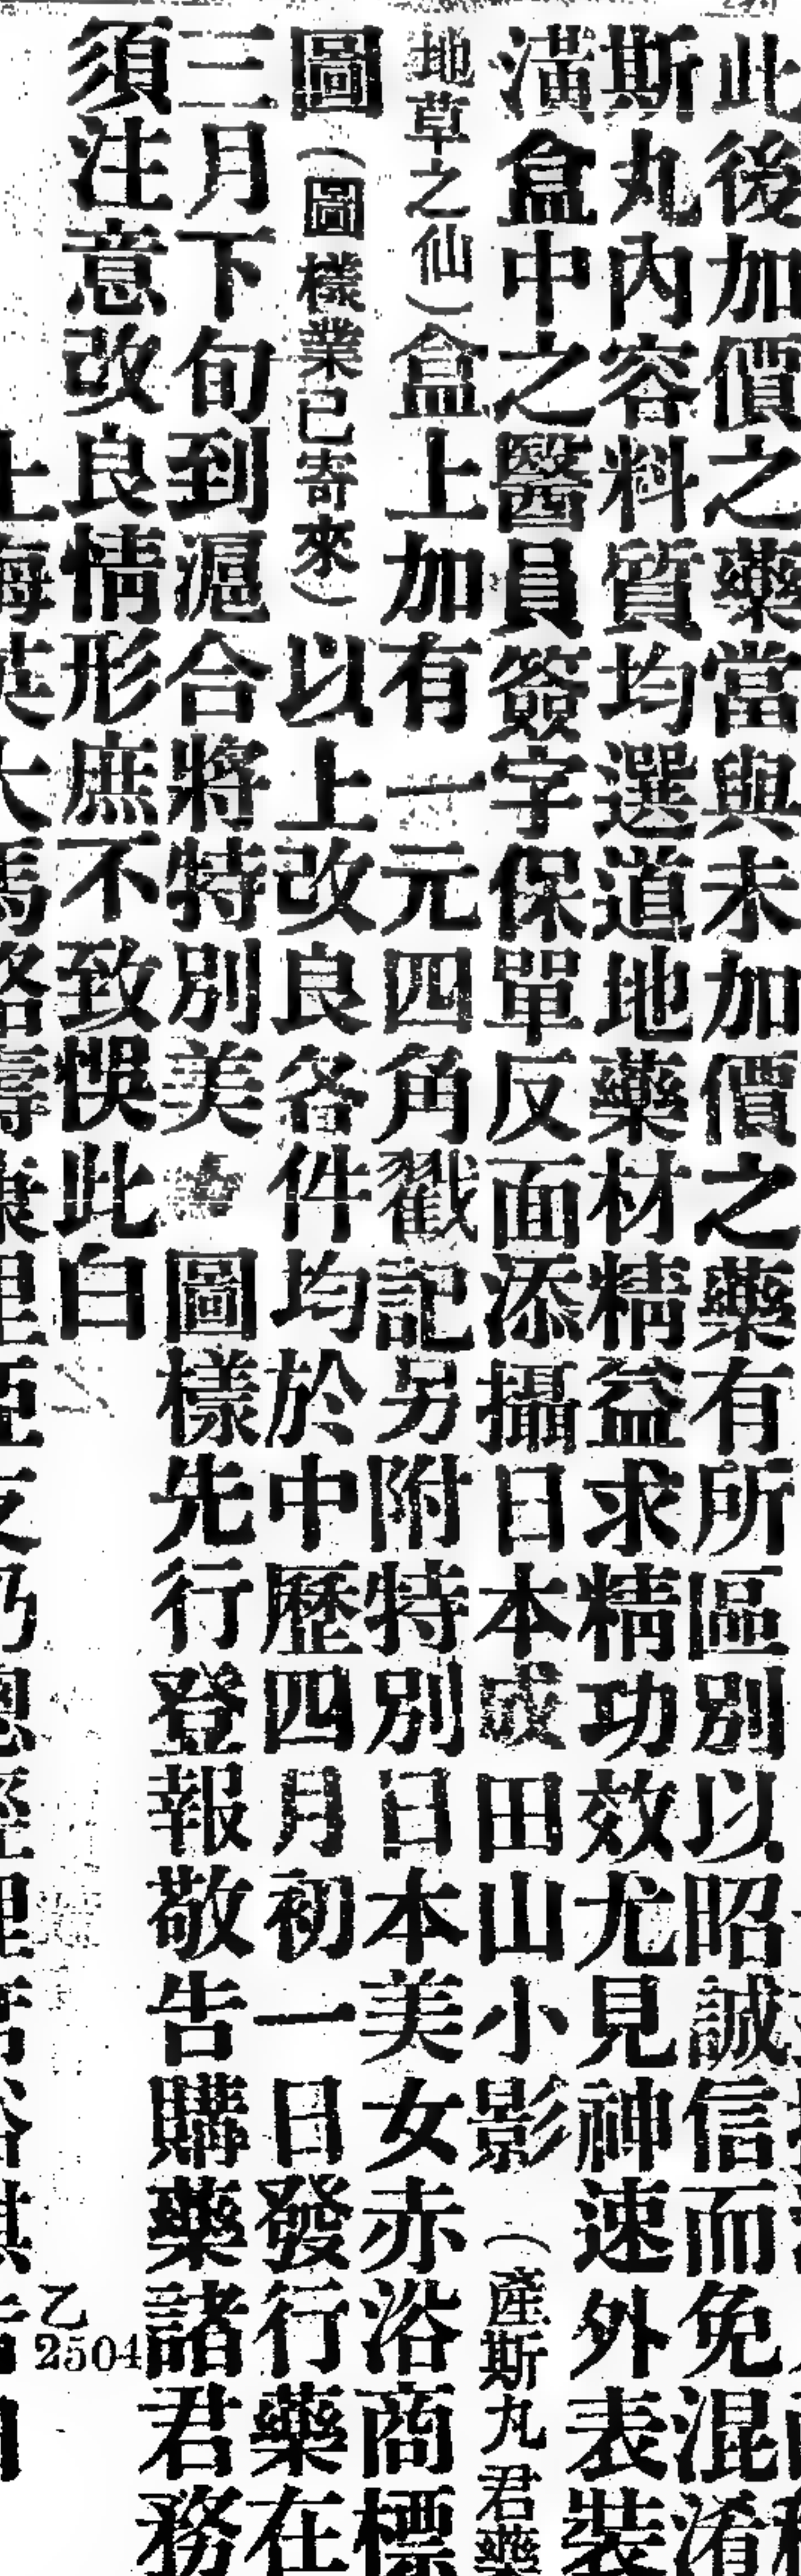 此後加價之藥當與未加價之藥有所區別以昭誠信而免混淆
斯丸內容料質均選道地藥材精益求精功效尤見神速外表裝
潢盒中之醫員簽字保單反面添攝日本成田山小影（產斯丸君藥
地草之仙）盒上加有一元四角戳記另附特別日本美女赤浴商標
圖（圖樣業已寄來）以上改良各件均於中歷四月初一日發行藥在
三月下旬到滬合將特別美圖樣先行登報敬告購藥諸君務
須注意改良情形庶不致悞此白
乙2504